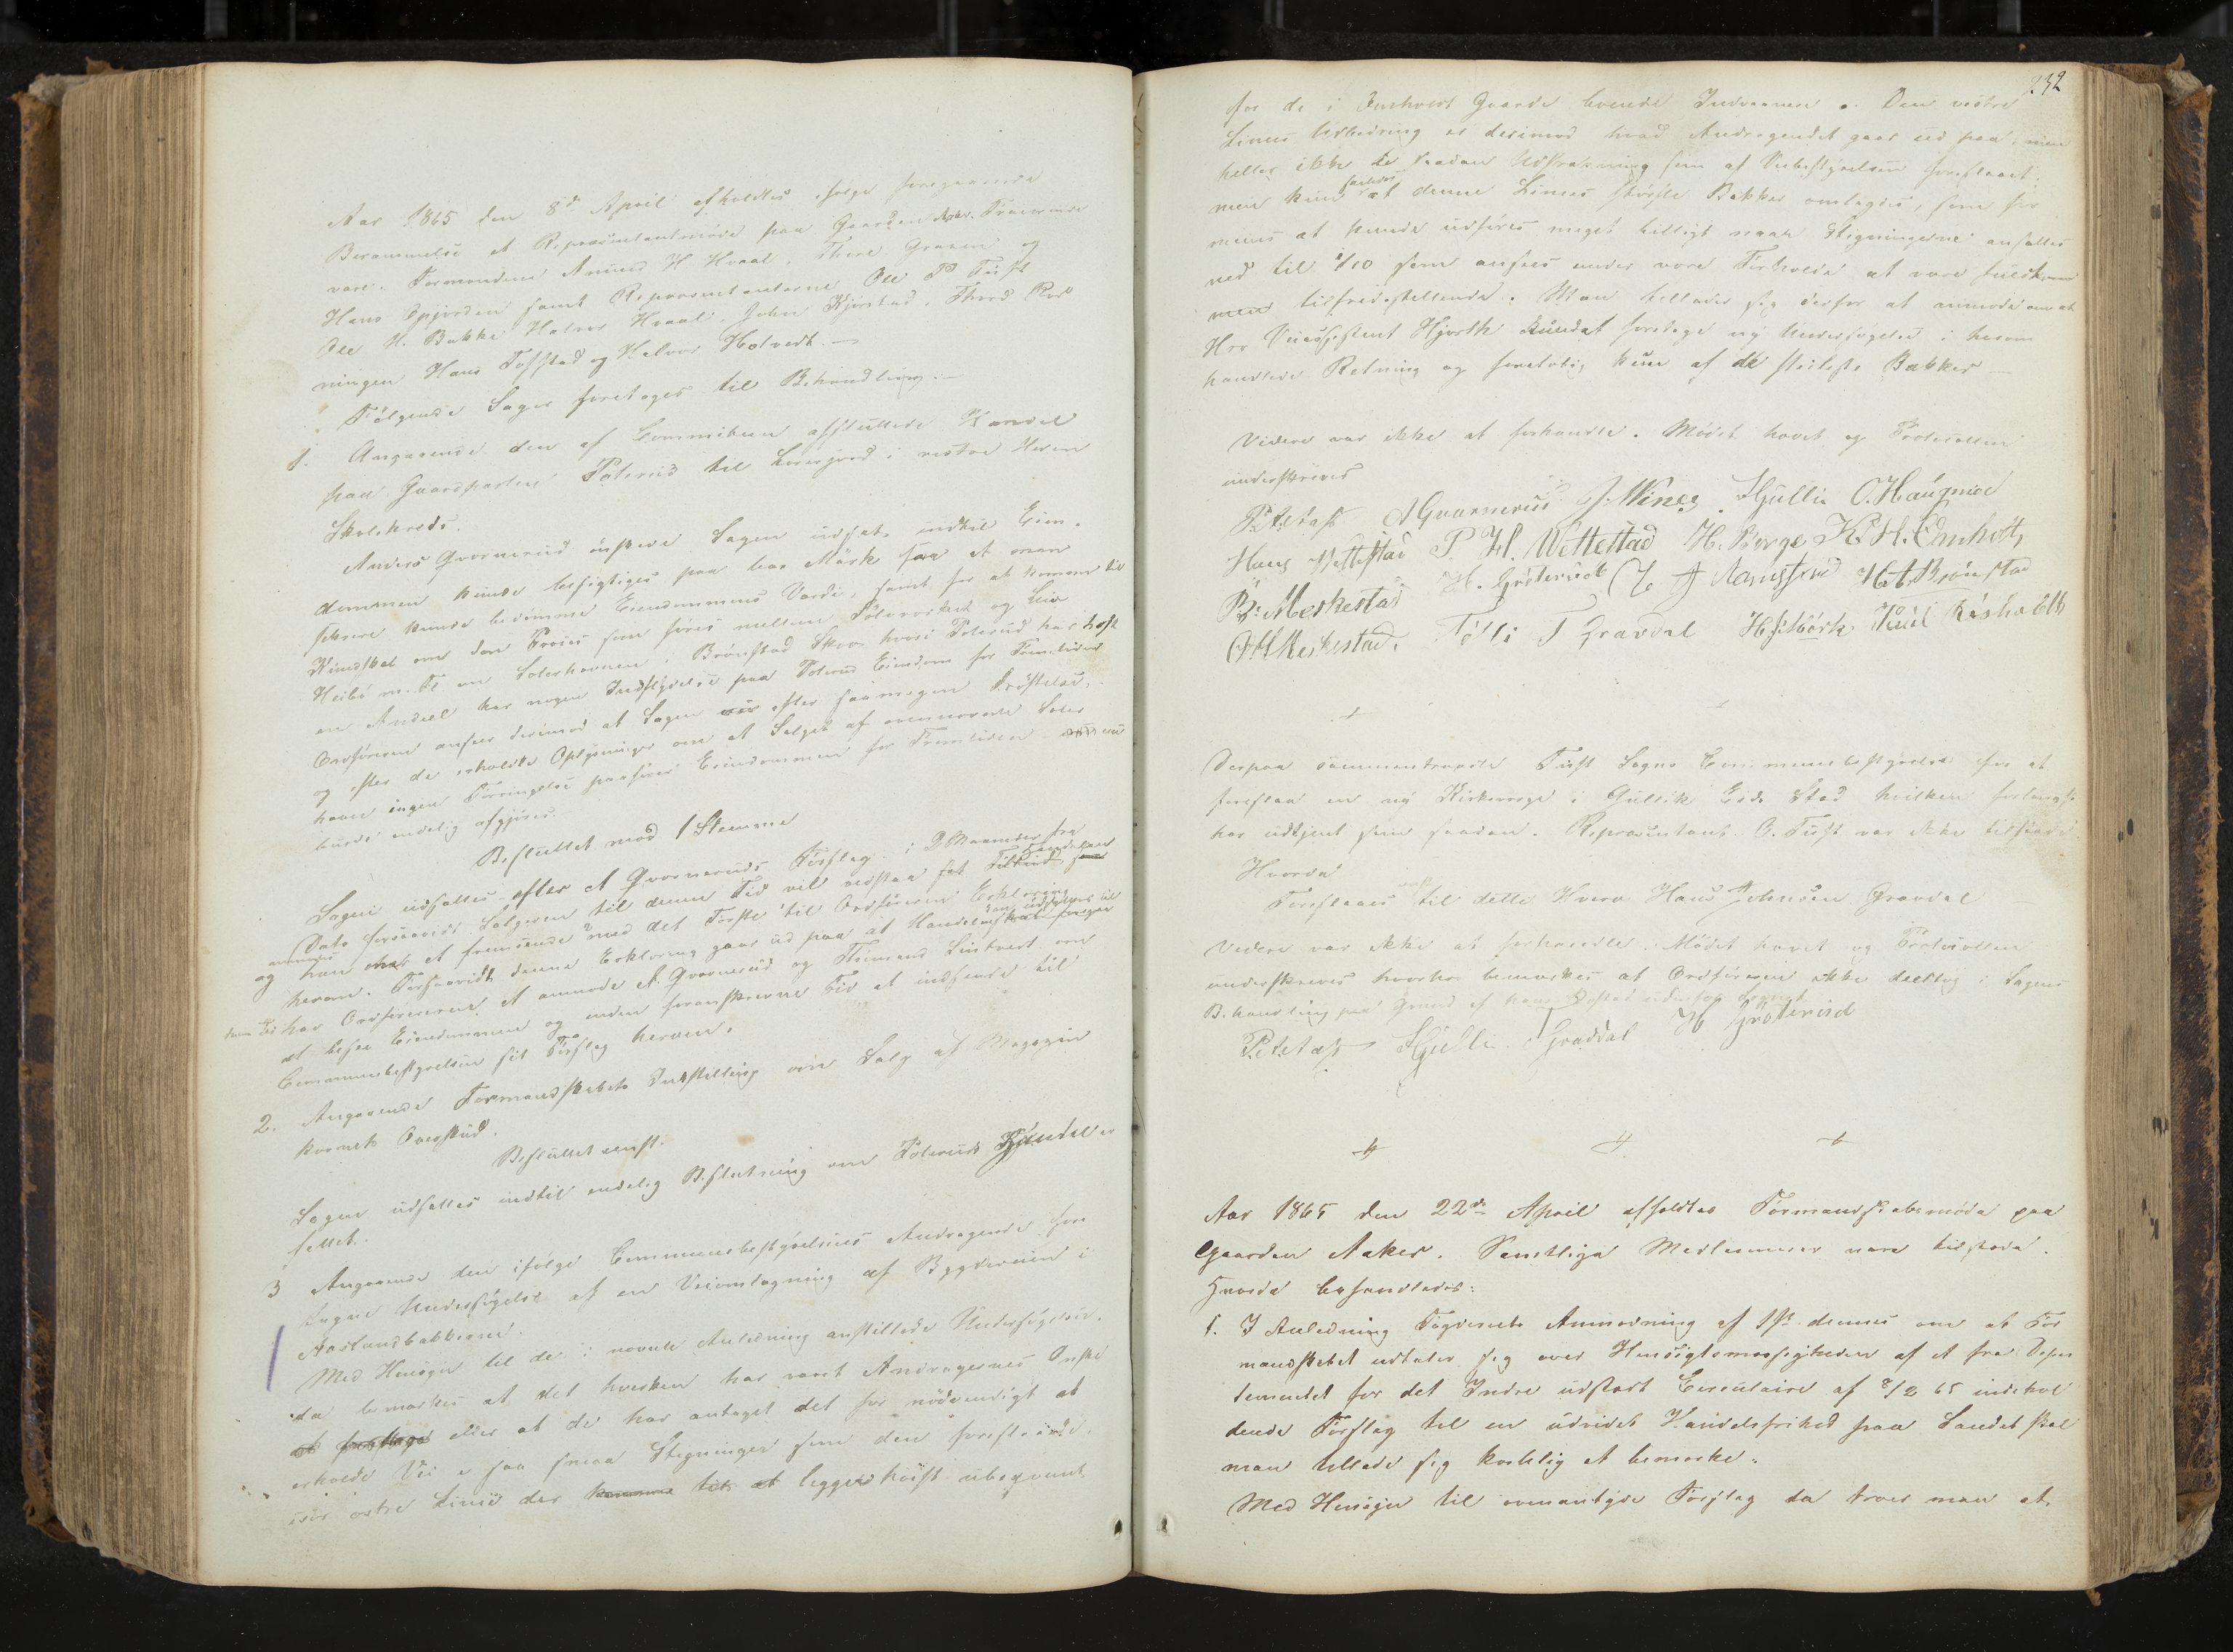 Aar 1865 den 8de April afholdtes ifølge foregaaende
Berammelse et Repræsentantmøde paa Gaarden Aaker. Fraværende
vare: Formændene Amund H Hvaal, Thore Graven og
Hans Opjorden samt Repræsentanterne Ole P Tufst
Ole H. Bakke Halvor Hvaal, John Kjørstad, Thord
ningen Hans Fosstad og Halvor Holtvedt. —
Følgende Sager foretoges til Behandling. —
1. Angaaende den af Commiteen afsluttede Handel
paa Gaardparten Poterud til Lærerjord i vestre
Skolekreds.
Anders Qvarnerud ønskede Sagen udsat indtil Eien-
dommen kunde besigtiges paa bar Mark saa at man
sikkere kunde bedømme Eiendommens Værdi, samt for at komme til
Kundskab om den Proces som føres mellem Sølvværket og Eier
i Brønstad Skov hvori Poterud har
en Andeel har nogen Indflydelse paa Poterud Eiendom for Fremtiden
Ordføreren ansees derimod at Sagen efter saamegen Drøftelse,
og efter de erholdte Oplysninger om at Salget af ovennævnte
havn ingen Forringelse paafører Eiendommen for Fremtiden nu
burde endelig afgjøres.
Besluttet mod 1 Stemme
Sagen udsættes efter A Qvarneruds Forslag i 2 Maaneder fra
Dato forsaavidt Sælgeren til denne Tid vil vedstaa sit Tilbud
og han at fremsende med det Første til Ordføreren Erklæring
herom. Forsaavidt denne Erklæring gaar ud paa at Handelen
har Ordføreren at anmode A Qvarnerud og Thomand om
at besee Eiendommen og inden foranskrevne Tid at indsende til
Communebestyrelsen sit Forslag herom.
2. Angaaende Formandskabets Indstilling om Salg af Magazin
kornets Overskud.
Besluttet eenst:
Sagen udsættes indtil endelig Beslutning om Poteruds Handel er
fattet.
3 Angaaende den ifølge Communebestyrelsens Andragende fore
tagne Undersøgelse af en Veiomlægning af Bygdeveien i
Aaslandbakkerne.
Med Hensyn til de i nævnte Anledning anstillede Undersøgelser,
da bemærkes at det hverken har været Andragernes Ønske
eller at de har antaget det for nødvendigt at
erholde Vei i saa smaa Stigninger som den foreslaaede,
især østre Linie der lægges høist ubeqvemt
232
for de i Gaarde boende Indvaanere. Den vestre
Linies Udbedring er derimod hvad Andragendet gaar ud paa, men
heller ikke i saadan Udstrækning som af Veibestyrelsen foreslaaet.
men kun saaledes at denne Linies største Bakker omlægges, som for
menes at kunde udføres meget billigt naar Stigningerne ansættes
ned til 1/10 som ansees under vore Forholde at være fuldkom
men tilfredsstillende. Man tillader sig derfor at anmode om at
Hrr Veiassistent Hjorth kunde foretage ny Undersøgelse i herom
handlede Retning og foreløbig kun af de steileste Bakker —
Videre var ikke at forhandle. Mødet hævet og Protocollen
underskreves
AQvarnerud J. Gulli O. Haugmoe
Hans Wettestad P. H. Wettestad H. Borge K. H. Omholt
B: Meskestad H. Grøterud H A. Brønstad
OHMeskestad. Tølli T Gravdal
Derpaa sammentraadte Tufst Sogns Communebestyrelse for at
foreslaa en ny Kirkeværge i Gullik Eide Sted hvilken forlængst
har udtjent som saadan. Repræsentant O. Tufst var ikke tilstede
Hvorda
Foreslaaes til dette Hverv Hans Johnsen Gravdal
Videre var ikke at forhandle. Mødet hævet og Protocollen
underskreves hvorhos bemærkes at Ordføreren ikke deeltog i Sagens
Behandling paa Grund af hans Bosted udenfor Sognet
Gulli T Gravdal H Grøterud
Aar 1865 den 22de April afholdtes Formandskabsmøde paa
Gaarden Aaker. Samtlige Medlemmer vare tilstede.
Hvorda behandledes:
1. I Anledning Fogderiets Anmodning af 1ste dennes om at For
mandskabet udtaler sig over Hensigtsmæssigheden af et fra Depar
tementet for det Indre udstædt Circulaire af 8/2 65 indehol
dende Forslag til en udvidet Handelsfrihed paa Landet skal
man tillade sig kortelig at bemærke:
Med Hensyn til ovenantydede Forslag da troer man at